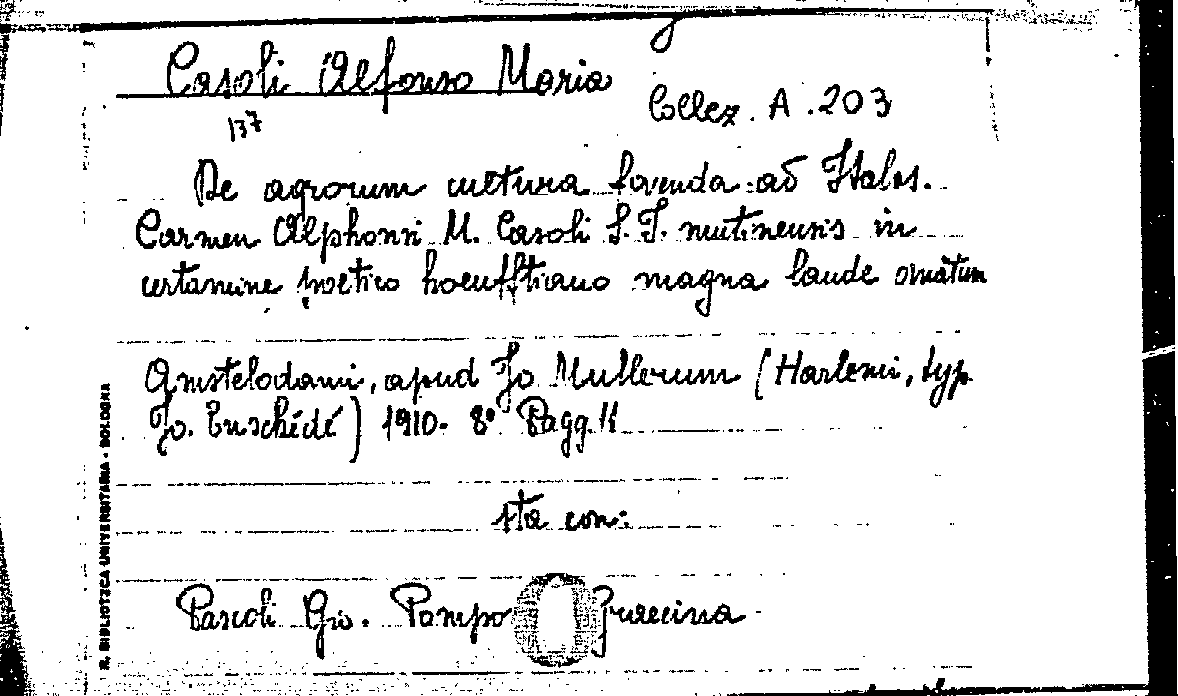 Casoli Alfonso Maria
Collez. A. 203
137
De agrorum cultura fovenda ad Italos.
Carmen Alphonsi M. Casoli S. J. mutinensis in
certamine poetico hoeufftiano magna laude ornatum
Amstelodami, apud Jo Mullerum (Harlemi, typ.
Jo. Enschédé) 1910. 8° Pagg. 11
sta con:
Pascoli Gio. Pompo Graecina
R. BIBLIOTECA UNIVERSITARIA - BOLOGNA